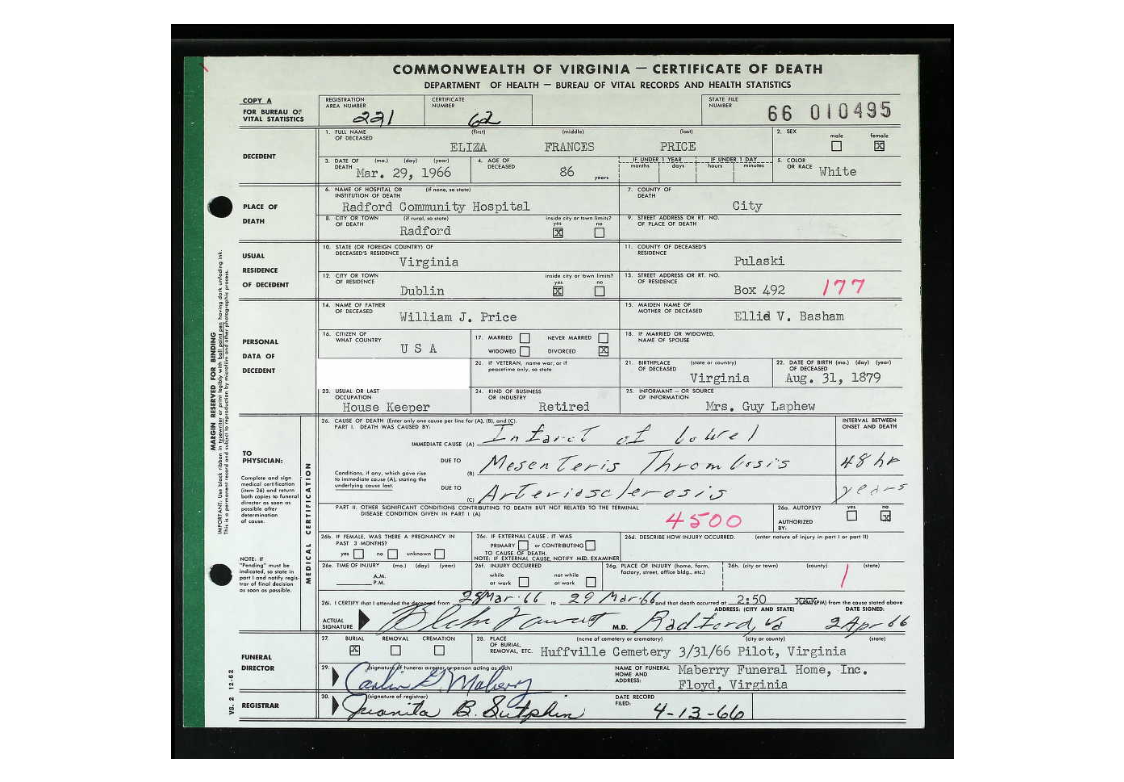 COMMONWEALTH OF VIRGINIA — CERTIFICATE OF DEATH
DEPARTMENT OF HEALTH — BUREAU OF VITAL RECORDS AND HEALTH STATISTICS
COPY A
FOR BUREAU OF
VITAL STATISTICS
REGISTRATION AREA NUMBER 221
CERTIFICATE NUMBER 62
STATE FILE NUMBER 66 010495
DECEDENT
1. FULL NAME OF DECEASED (first) (middle) (last)
ELIZA FRANCES PRICE
2. SEX male female X
3. DATE OF DEATH (mo.) (day) (year)
Mar. 29, 1966
4. AGE OF DECEASED 86 years
IF UNDER 1 YEAR months days IF UNDER 1 DAY hours minutes
5. COLOR OR RACE White
PLACE OF DEATH
6. NAME OF HOSPITAL OR INSTITUTION OF DEATH (if none, so state)
Radford Community Hospital
7. COUNTY OF DEATH
City
8. CITY OR TOWN OF DEATH (if rural, so state)
Radford
inside city or town limits? yes X no
9. STREET ADDRESS OR RT. NO. OF PLACE OF DEATH
USUAL RESIDENCE OF DECEDENT
10. STATE (OR FOREIGN COUNTRY) OF DECEASED'S RESIDENCE
Virginia
11. COUNTY OF DECEASED'S RESIDENCE
Pulaski
12. CITY OR TOWN OF RESIDENCE
Dublin
inside city or town limits? yes X no
13. STREET ADDRESS OR RT. NO. OF RESIDENCE
Box 492 177
PERSONAL DATA OF DECEDENT
14. NAME OF FATHER OF DECEASED
William J. Price
15. MAIDEN NAME OF MOTHER OF DECEASED
Ellid V. Basham
16. CITIZEN OF WHAT COUNTRY
U S A
17. MARRIED NEVER MARRIED
WIDOWED DIVORCED X
18. IF MARRIED OR WIDOWED, NAME OF SPOUSE
20. IF VETERAN, name war, or if peacetime only, so state
21. BIRTHPLACE OF DECEASED (state or country)
Virginia
22. DATE OF BIRTH (mo.) (day) (year) OF DECEASED
Aug. 31, 1879
23. USUAL OR LAST OCCUPATION
House Keeper
24. KIND OF BUSINESS OR INDUSTRY
Retired
25. INFORMANT – OR SOURCE OF INFORMATION
Mrs. Guy Laphew
MARGIN RESERVED FOR BINDING
TO PHYSICIAN:
Complete and sign medical certification (item 26) and return both copies to funeral director as soon as possible after determination of cause.
NOTE: IF "Pending" must be indicated, so state in part I and notify registrar of final decision as soon as possible.
MEDICAL CERTIFICATION
26. CAUSE OF DEATH (Enter only one cause per line for (A), (B), and (C).
PART I. DEATH WAS CAUSED BY:
INTERVAL BETWEEN ONSET AND DEATH
IMMEDIATE CAUSE (A) Infarct of bowel
Conditions, if any, which gave rise to immediate cause (A), stating the underlying cause last.
DUE TO (B) Mesenteris Thrombosis 48 hr
DUE TO (C) Arteriosclerosis years
PART II. OTHER SIGNIFICANT CONDITIONS CONTRIBUTING TO DEATH BUT NOT RELATED TO THE TERMINAL DISEASE CONDITION GIVEN IN PART I (A)
4500
26a. AUTOPSY? yes no X
AUTHORIZED BY:
26b. IF FEMALE, WAS THERE A PREGNANCY IN PAST 3 MONTHS?
yes no unknown
26c. IF EXTERNAL CAUSE, IT WAS
PRIMARY or CONTRIBUTING
TO CAUSE OF DEATH.
NOTE: IF EXTERNAL CAUSE, NOTIFY MED. EXAMINER
26d. DESCRIBE HOW INJURY OCCURRED. (enter nature of injury in part I or part II)
26e. TIME OF INJURY (mo.) (day) (year)
A.M.
P.M.
26f. INJURY OCCURRED
while at work not while at work
26g. PLACE OF INJURY (home, farm, factory, street, office bldg., etc.)
26h. (city or town) (county) (state)
26i. I CERTIFY that I attended the deceased from 28 Mar 66 to 29 Mar 66 and that death occurred at 2:50 (PM) from the cause stated above
ADDRESS: (CITY AND STATE) DATE SIGNED:
ACTUAL SIGNATURE M.D. Radford, Va 2 Apr 66
FUNERAL DIRECTOR
27. BURIAL X REMOVAL CREMATION
28. PLACE OF BURIAL, REMOVAL, ETC. (name of cemetery or crematory) (city or county) (state)
Huffville Cemetery 3/31/66 Pilot, Virginia
29. (signature of funeral director or person acting as such)
NAME OF FUNERAL HOME AND ADDRESS: Maberry Funeral Home, Inc.
Floyd, Virginia
REGISTRAR
30. (signature of registrar)
Juanita B. Sutphin
DATE RECORD FILED: 4-13-66
VS. 2 12-62